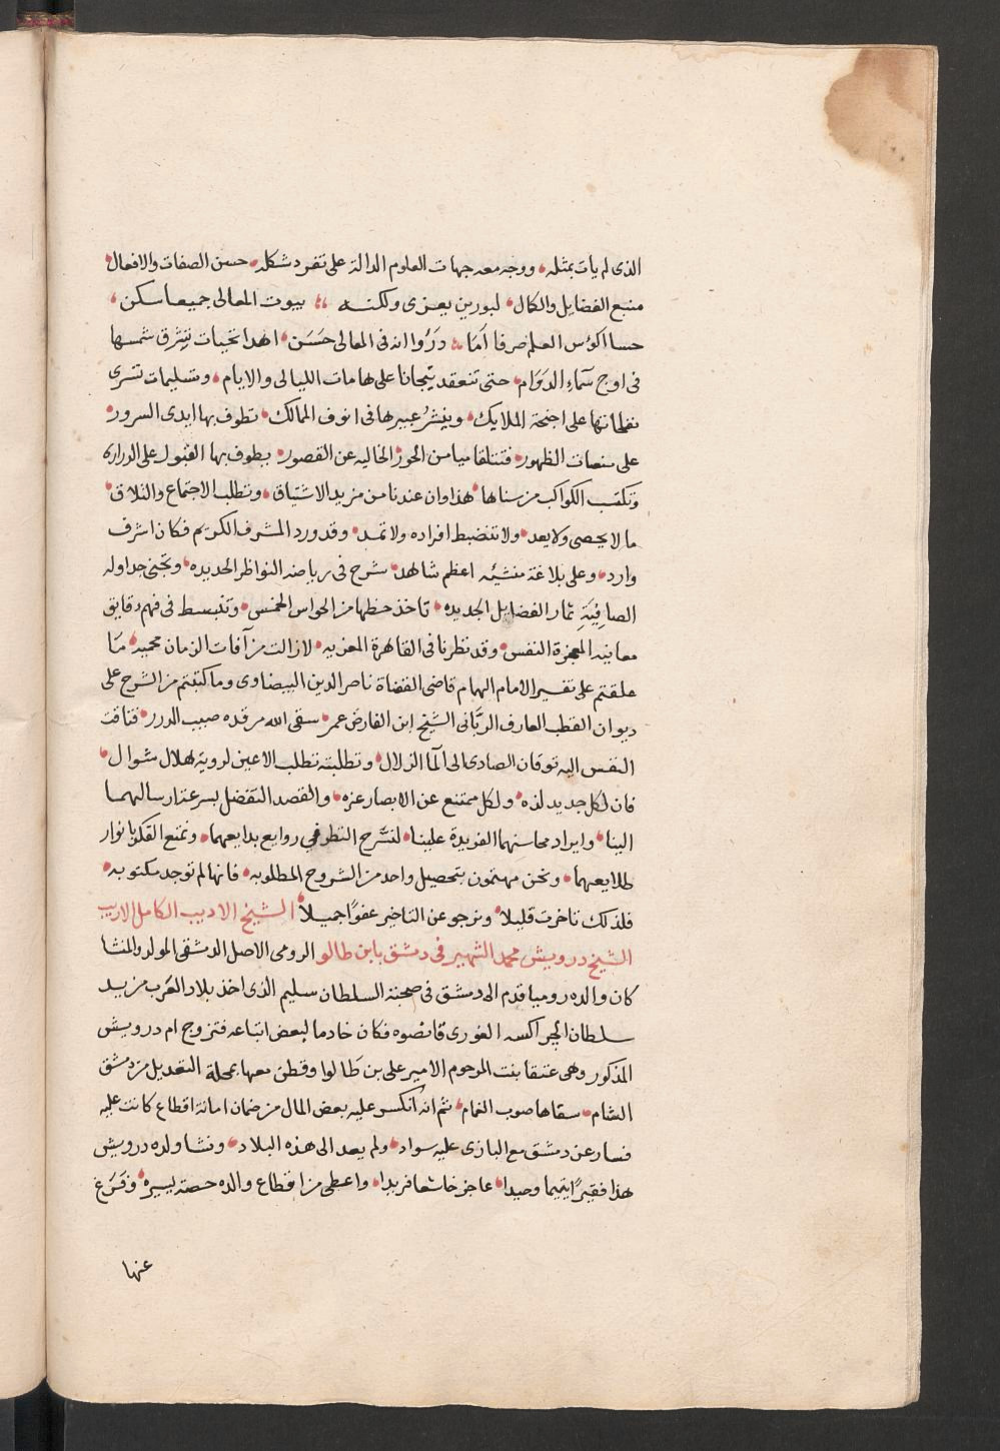 الذى لم يات بمثله، ووجه معه جهات العلوم الدالة على تفرد شكله، حسن الصفات والافعال،
منبع الفضايل والكمال، لبورين يعزى ولكنه بيوت المعالى جميعا سكن،
حسا اكوس العلم صرفا اما دروا انه فى المعالى حَسَن، اهدا تحيات تشرق شمسها
فى اوج سماء الدوام، حتى تنعقد تيجانا على هامات الليالى والايام، وتسليمات تسرى
نفحاتها على اجنحة الملايك، وينشر عبيرها فى انوف الممالك، تطوف بها ايدى السرور،
على منصات الظهور، فتتلقا ميامن الحور الخاليه عن القصور، يطوف بها القبول على الدرارى
وتكتب الكواكب من سناها، هذا وان عندنا من مزيد الاشتياق، وتطلب الاجتماع والتلاق،
ما لا يحصى ولا يعد، ولا تنضبط افراده ولا تمد، وقد ورد المشرف الكريم فكان اشرف
وارد، وعلى بلاغة منشئه اعظم شاهد، سرح فى رياضه النواظر الحديده، وتجنى جداوله
الصافية ثمار الفضايل الجديده، تاخذ حظها من الحواس الخمس، وتنبسط فى فهم دقايق
معانيه المعجزة النفس، وقد نظرنا فى القاهرة المعزيه، لا زالت من آفات الزمان محميه، ما
علقتم على تفسير الامام الهمام قاضى القضاة ناصر الدين البيضاوى وما كتبتم من الشرح على
ديوان القطب العارف الربانى الشيخ ابن الفارض عمر، سقى الله مرقده صبيب الدرر، فتاقت
النفس اليه توقان الصادى الى الما الزلال، وتطلبته تطلب الاعين لروية هلال شوال،
فان لكل جديد لذه، ولكل ممتنع عن الابصار عزه، والقصد التفضل بسرعة ارسالهما
الينا، وايراد محاسنهما الفريدة علينا، لنسرح النظر في روايع بدايعهما، ونمتع الفكر بانوار
طلايعهما، ونحن مهتمون بتحصيل واحد من الشروح المطلوبه، فانها لم توجد مكتوبه،
فلذلك تاخرت قليلا، ونرجو عن التاخير عفوا جميلا، الشيخ الاديب الكامل الاريب
الشيخ درويش محمد الشهير فى دمشق بابن طالو الرومى الاصل الدمشقى المولد والمنشا
كان والده روميا قدم الى دمشق فى صحبة السلطان سليم الذى اخذ بلاد العرب من يد
سلطان الجراكسه الغورى قانصوه فكان خادما لبعض اتباعه فتزوج ام درويش
المذكور وهى عتقا بنت المرحوم الامير على بن طالوا وقطن معها بمحلة التعديل من دمشق
الشام، سقاها صوب الغمام، ثم انه انكسر عليه بعض المال من ضمان امانة اقطاع كانت عليه
فسار عن دمشق مع البازى عليه سواد، ولم يعد الى هذه البلاد، ونشا ولده درويش
هذا فقيرا يتيما وحيدا، عاجز خاشعا فريدا، واعطى من اقطاع والده حصة يسيره، وفرغ
عنها